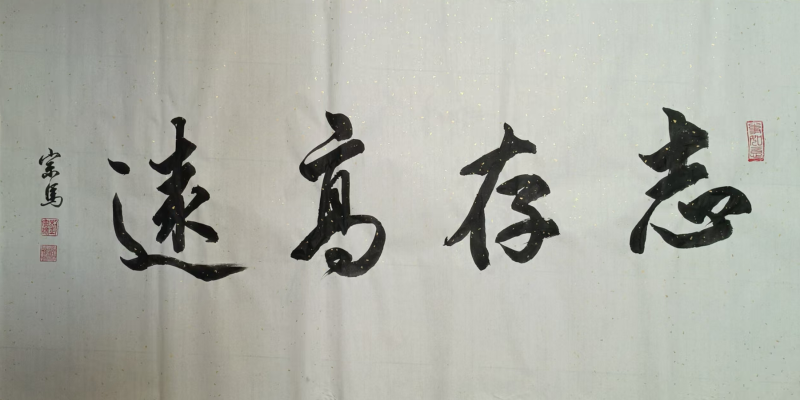 志存高遠
宗馬